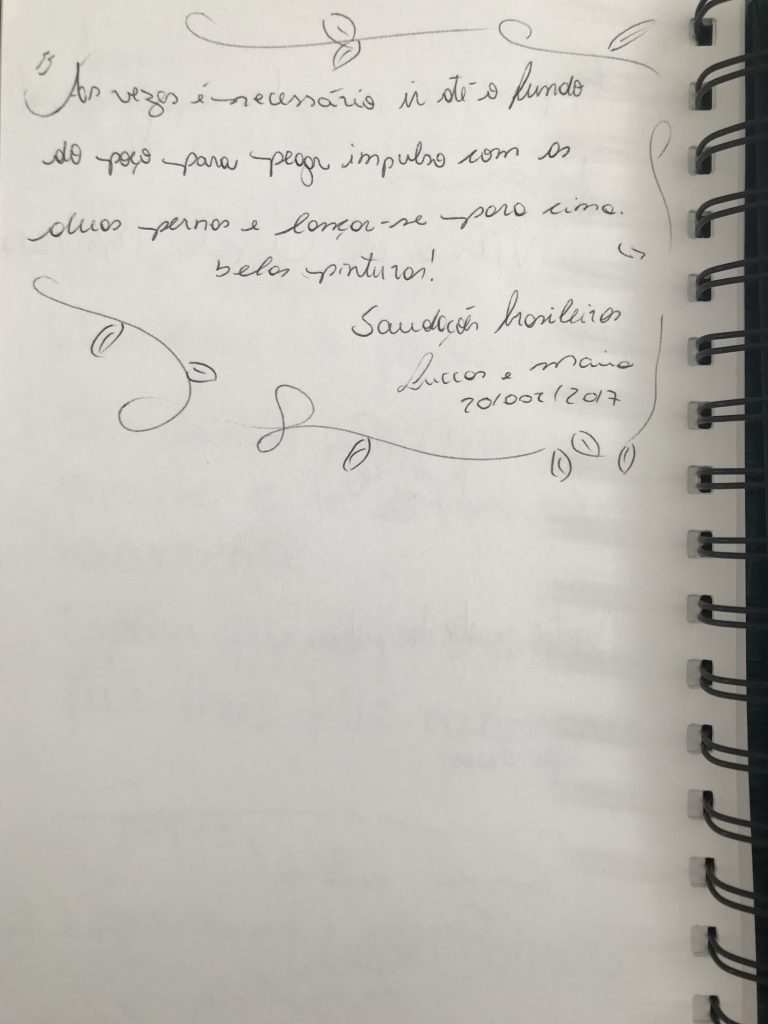 " As vezes é necessário ir até o fundo
do poço para pegar impulso com as
duas pernas e lançar-se para cima. "
belas pinturas!
Saudações brasileiras
Luccas e Maina
20/002/2017